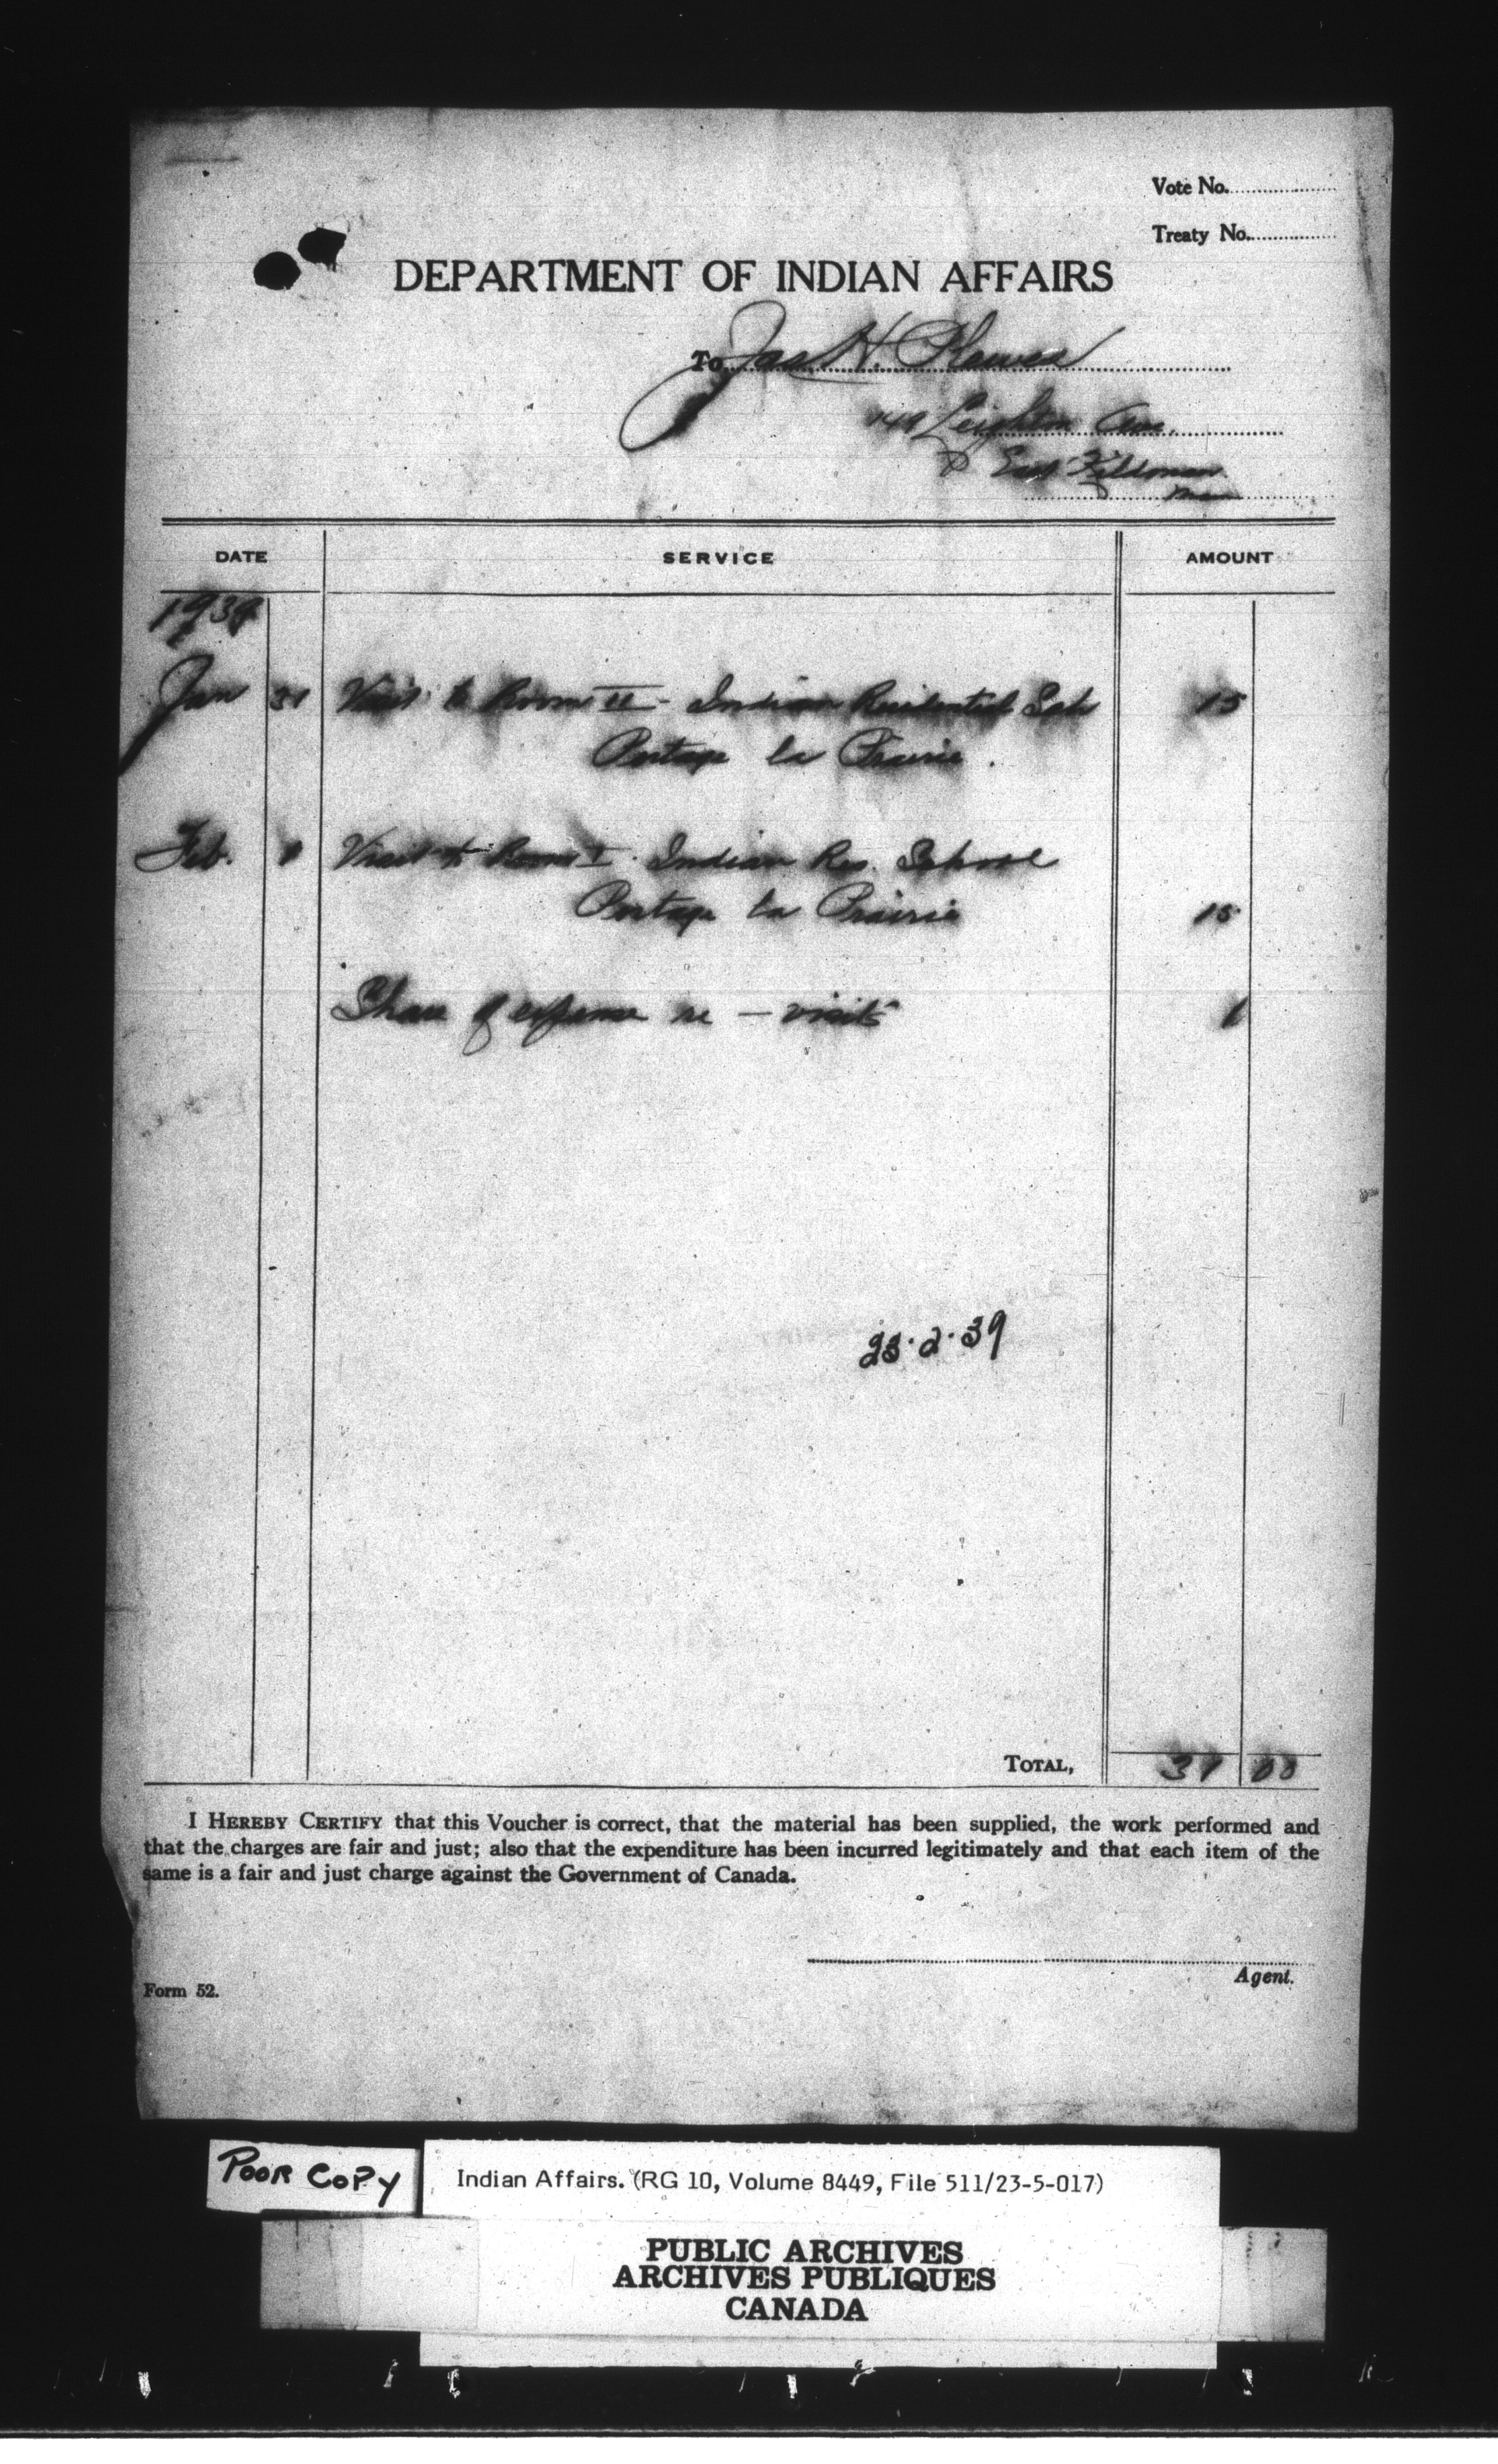 Vote No.
Treaty No.
DEPARTMENT OF INDIAN AFFAIRS
To Jas H. Plewes
149 Leighton Ave.
East Kildonan
Man
DATE SERVICE AMOUNT
1939
Jan 31 Visit to Room II - Indian Residential Sch 15
Portage la Prairie.
Feb. 1 Visit to Room I. Indian Res. School
Portage la Prairie 15
Share of expense re - visits 1
23.2.39
TOTAL, 31 00
I HEREBY CERTIFY that this Voucher is correct, that the material has been supplied, the work performed and
that the charges are fair and just; also that the expenditure has been incurred legitimately and that each item of the
same is a fair and just charge against the Government of Canada.
Agent.
Form 52.
POOR COPY
Indian Affairs. (RG 10, Volume 8449, File 511/23-5-017)
PUBLIC ARCHIVES
ARCHIVES PUBLIQUES
CANADA